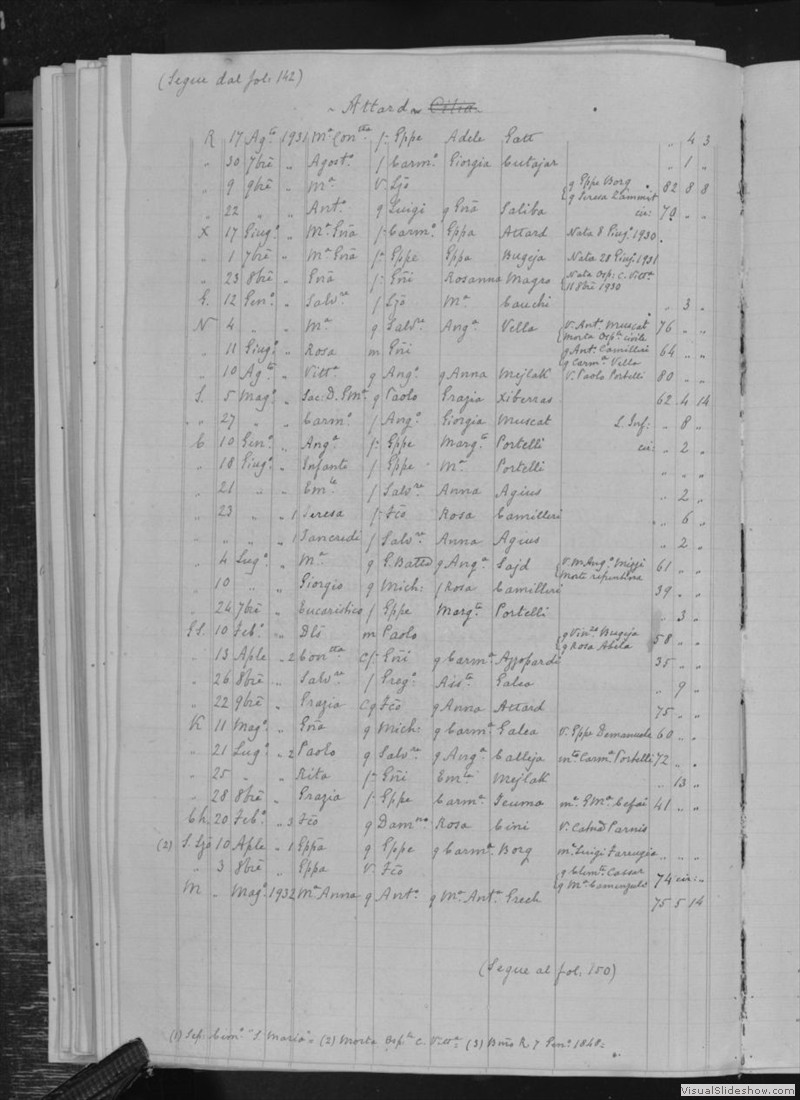 (Segue dal fol. 142)
~ Attard ~ Cilia
R 17 Agto 1931 Ma Contta f. Gppe Adele Gatt „ 4 3
„ 30 7bre „ Agosto f Carmo Giorgia Cutajar „ 1 „
„ 9 9bre „ Ma V. Ljo { q Gppe Borg q Teresa Zammit 82 8 8
„ 22 „ „ Anto q Luigi q Gna Saliba cir: 70 „ „
X 17 Giugo „ Ma Gna f. Carmo Gppa Attard Nata 8 Giugo 1930
„ 1 7bre „ Ma Gna f. Gppe Gppa Bugeja Nata 28 Giugo 1931
„ 23 8bre „ Gna f. Gni Rosanna Magro { Nata Osp: C. Vitta 11 8bre 1930
G. 12 Geno „ Salvre f Ljo Ma Cauchi „ 3 „
N 4 „ „ Ma q Salvre Anga Vella { V. Anto Muscat morta Osple civile 76 „ „
„ 11 Giugo „ Rosa m Gni { q Anto Camilleri q Carma Vella 64 „ „
„ 10 Agto „ Vitta q Ango q Anna Mejlak V. Paolo Portelli 80 „ „
S. 5 Mago „ Sac. D. Emle q Paolo Grazia Xiberras 62 4 14
„ 27 „ „ Carmo f Ango Giorgia Muscat L. Inf: „ 8 „
C 10 Geno „ Anga f. Gppe Margta Portelli cir: „ 2 „
„ 18 Giugo „ Infante f Gppe Ma Portelli „ „ „
„ 21 „ „ Emle f Salvre Anna Agius „ 2 „
„ 23 „ „ 1 Teresa f. Fco Rosa Camilleri „ 6 „
„ „ „ „ 1 Tancredi f Salvre Anna Agius „ 2 „
„ 4 Lugo „ Ma q G. Batta q Anga Sajd { V. M. Ango Mizzi 61 „ „
„ 10 „ „ Giorgio q Mich: f Rosa Camilleri 39 „ „
„ 24 7bre „ Eucaristico f Gppe Margta Portelli „ 3 „
GS. 10 Febo „ Dls m Paolo { q Vinzo Bugeja q Rosa Abela 58 „ „
„ 13 Aple „ 2 Contta cf. Gni q Carma Azzopardi 35 „ „
„ 26 8bre „ Salvre f Grego Assta Galea „ 9 „
„ 22 9bre „ Grazia cq Fco q Anna Attard 75 „ „
K 11 Mago „ Gna q Mich: q Carma Galea V. Gppe Demanuele 60 „ „
„ 21 Lugo „ 2 Paolo q Salvre q Anga Calleja mto Carma Portelli 72 „ „
„ 25 „ „ Rita f. Gni Emla Mejlak „ 13 „
„ 28 8bre „ Grazia f. Gppe Carma Scuma ma G. Ma Cefai 41 „ „
Ch. 20 Febo „ 3 Fco q Damno Rosa Cini V. Catna Parnis
(2) S. Ljo 10 Aple „ 1 Gppa q Gppe q Carma Borg m. Luigi Farrugia „ „ „
„ 3 8bre „ Gppa V. Fco { q Clemte Cassar q Ma Camenzuli 74 cir: „
M „ Mago 1932 Ma Anna q Anto q Ma Anta Grech 75 5 14
(Segue al fol. 150)
(1) Sep: Cimo "S. Maria" = (2) Morta Osple C. Vitta = (3) R. 7 Geno 1848 =
VisualSlideshow.com